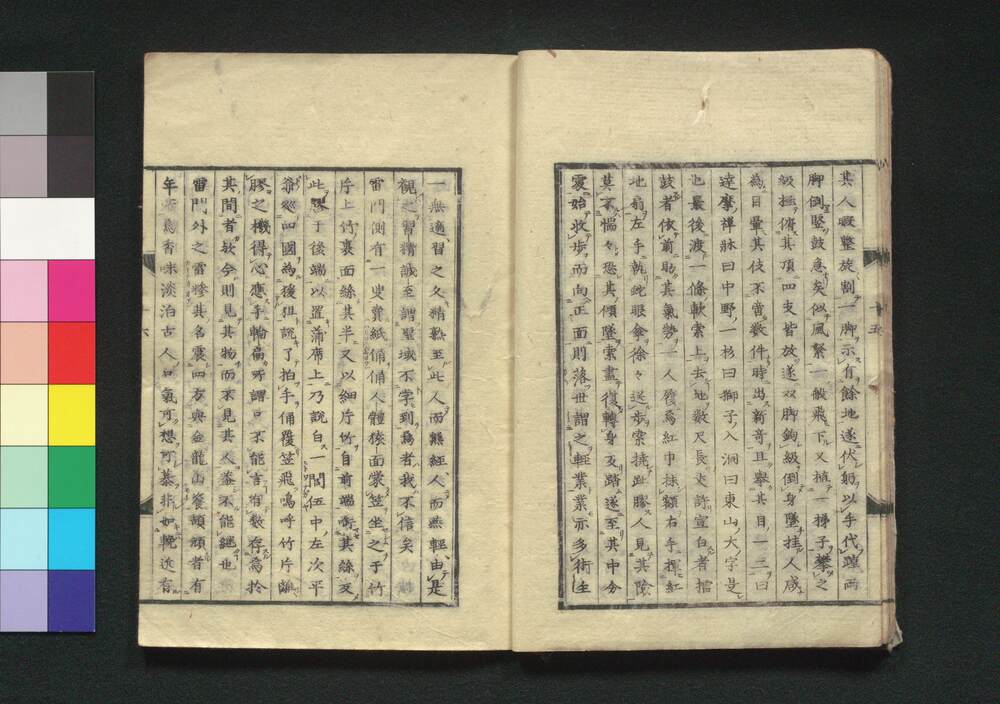 其人暇整旋割一脚示有餘地遂伏躬以手代踵兩
脚倒竪鼓急矣似風緊一散飛下又植一梯子攀之
級摇𠋣其頂四支皆放遂双脚鉤級倒身墜挂人咸
為目暈其伎不當数件時出新竒且舉其目一二曰
達摩禅牀曰中野一杉曰獅子入洞曰東山大字是
也最後渡一條軟索上去地数尺長丈許宣白者擂
鼓者依前助其氣勢一人覆為紅巾抹額右手揮紅
地扇左手執蛇眼傘徐々送歩索撓趾膠人見其險
莫不惴々恐其傾墜索盡復轉身反踏遂至其中分
震始收歩而向正面則落世謂之輕業業示多術主
一無適習之久精熟至此人而無經人而無輕由是
觀之習精誠至謂聖域不学到為者我不信矣
雷門側有一叟賣紙俑俑人體矮面蒙笠坐之于竹
片上竹裏面絲其半又以細片竹自前端銜其絲反
此膠于後端以置蒲席上乃說白一閧伍中左次平
翁巡四國為猨狙說了拍手俑覆笠飛鳴呼竹片離
膠之機得心應手輪扁所謂口不能言有数存焉於
其間者歟今則見其物而不見其人蓋不能継也
雷門外之雷糁其名震四方與金龍山餈頡頏者有
年香味淡泊古人口氣可想可慕非如輓近有
十五
十六